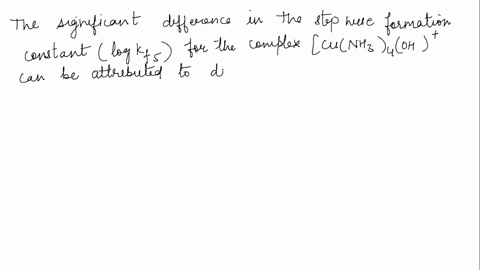 The significant difference in the step wise formation
constant (log Kf5) for the complex [Cu(NH3)4(OH)+
can be attributed to d